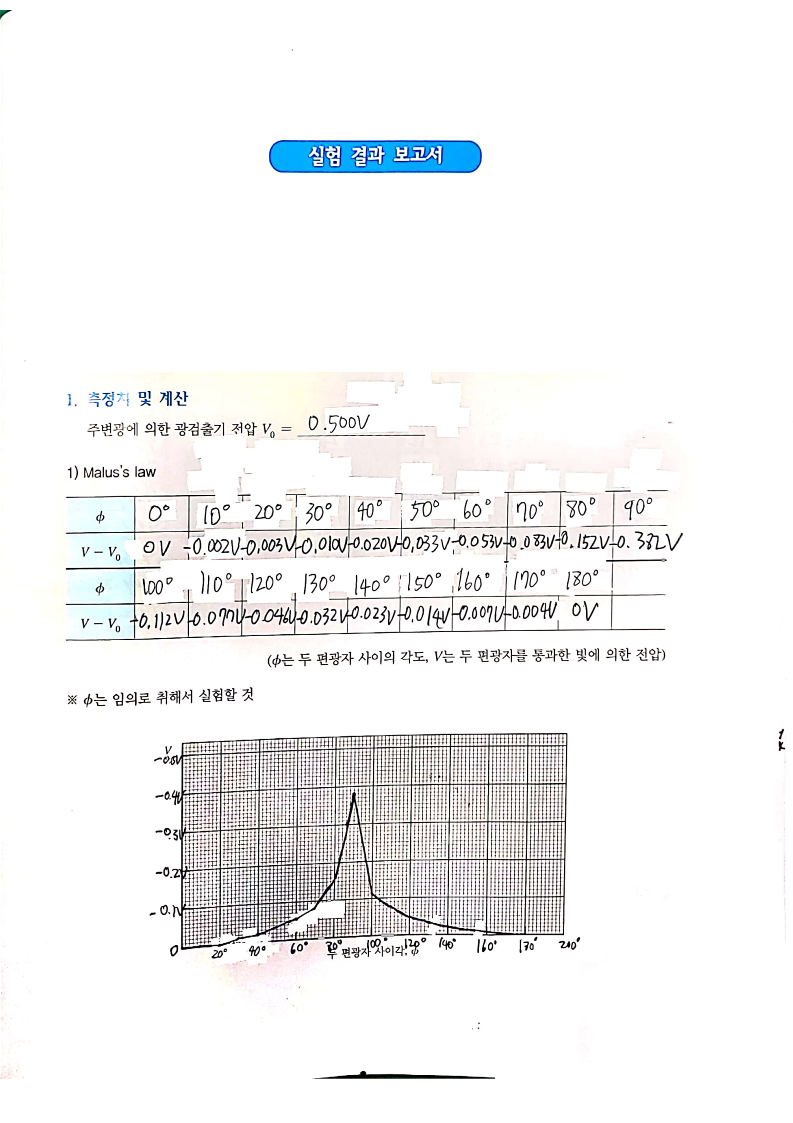 실험 결과 보고서
1. 측정치 및 계산
주변광에 의한 광검출기 전압 V₀ = 0.500V
1) Malus's law
ϕ 0° 10° 20° 30° 40° 50° 60° 70° 80° 90°
V − V₀ 0V -0.002V -0.003V -0.010V -0.020V -0.033V -0.053V -0.083V -0.152V -0.382V
ϕ 100° 110° 120° 130° 140° 150° 160° 170° 180°
V − V₀ -0.112V -0.077V -0.046V -0.032V -0.023V -0.014V -0.007V -0.004V 0V
(ϕ는 두 편광자 사이의 각도, V는 두 편광자를 통과한 빛에 의한 전압)
※ ϕ는 임의로 취해서 실험할 것
V
-0.5V
-0.4V
-0.3V
-0.2V
-0.1V
0 20° 40° 60° 80° 100° 120° 140° 160° 180° 200°
두 편광자 사이각, ϕ